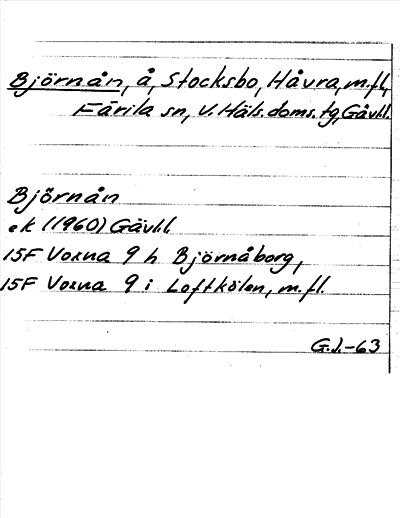 Björnån, å, Stocksbo, Håvra, m.fl.,
Färila sn, V. Häls. doms. tg, Gävl.l.
Björnån
ek (1960) Gävl.l.
15F Voxna 9 h Björnåborg,
15F Voxna 9 i Loftkölen, m.fl.
G.J.-63